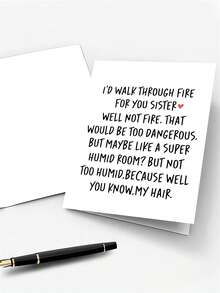 I'D WALK THROUGH FIRE
FOR YOU SISTER♥
WELL NOT FIRE. THAT
WOULD BE TOO DANGEROUS.
BUT MAYBE LIKE A SUPER
HUMID ROOM? BUT NOT
TOO HUMID.BECAUSE WELL
YOU KNOW.MY HAIR.